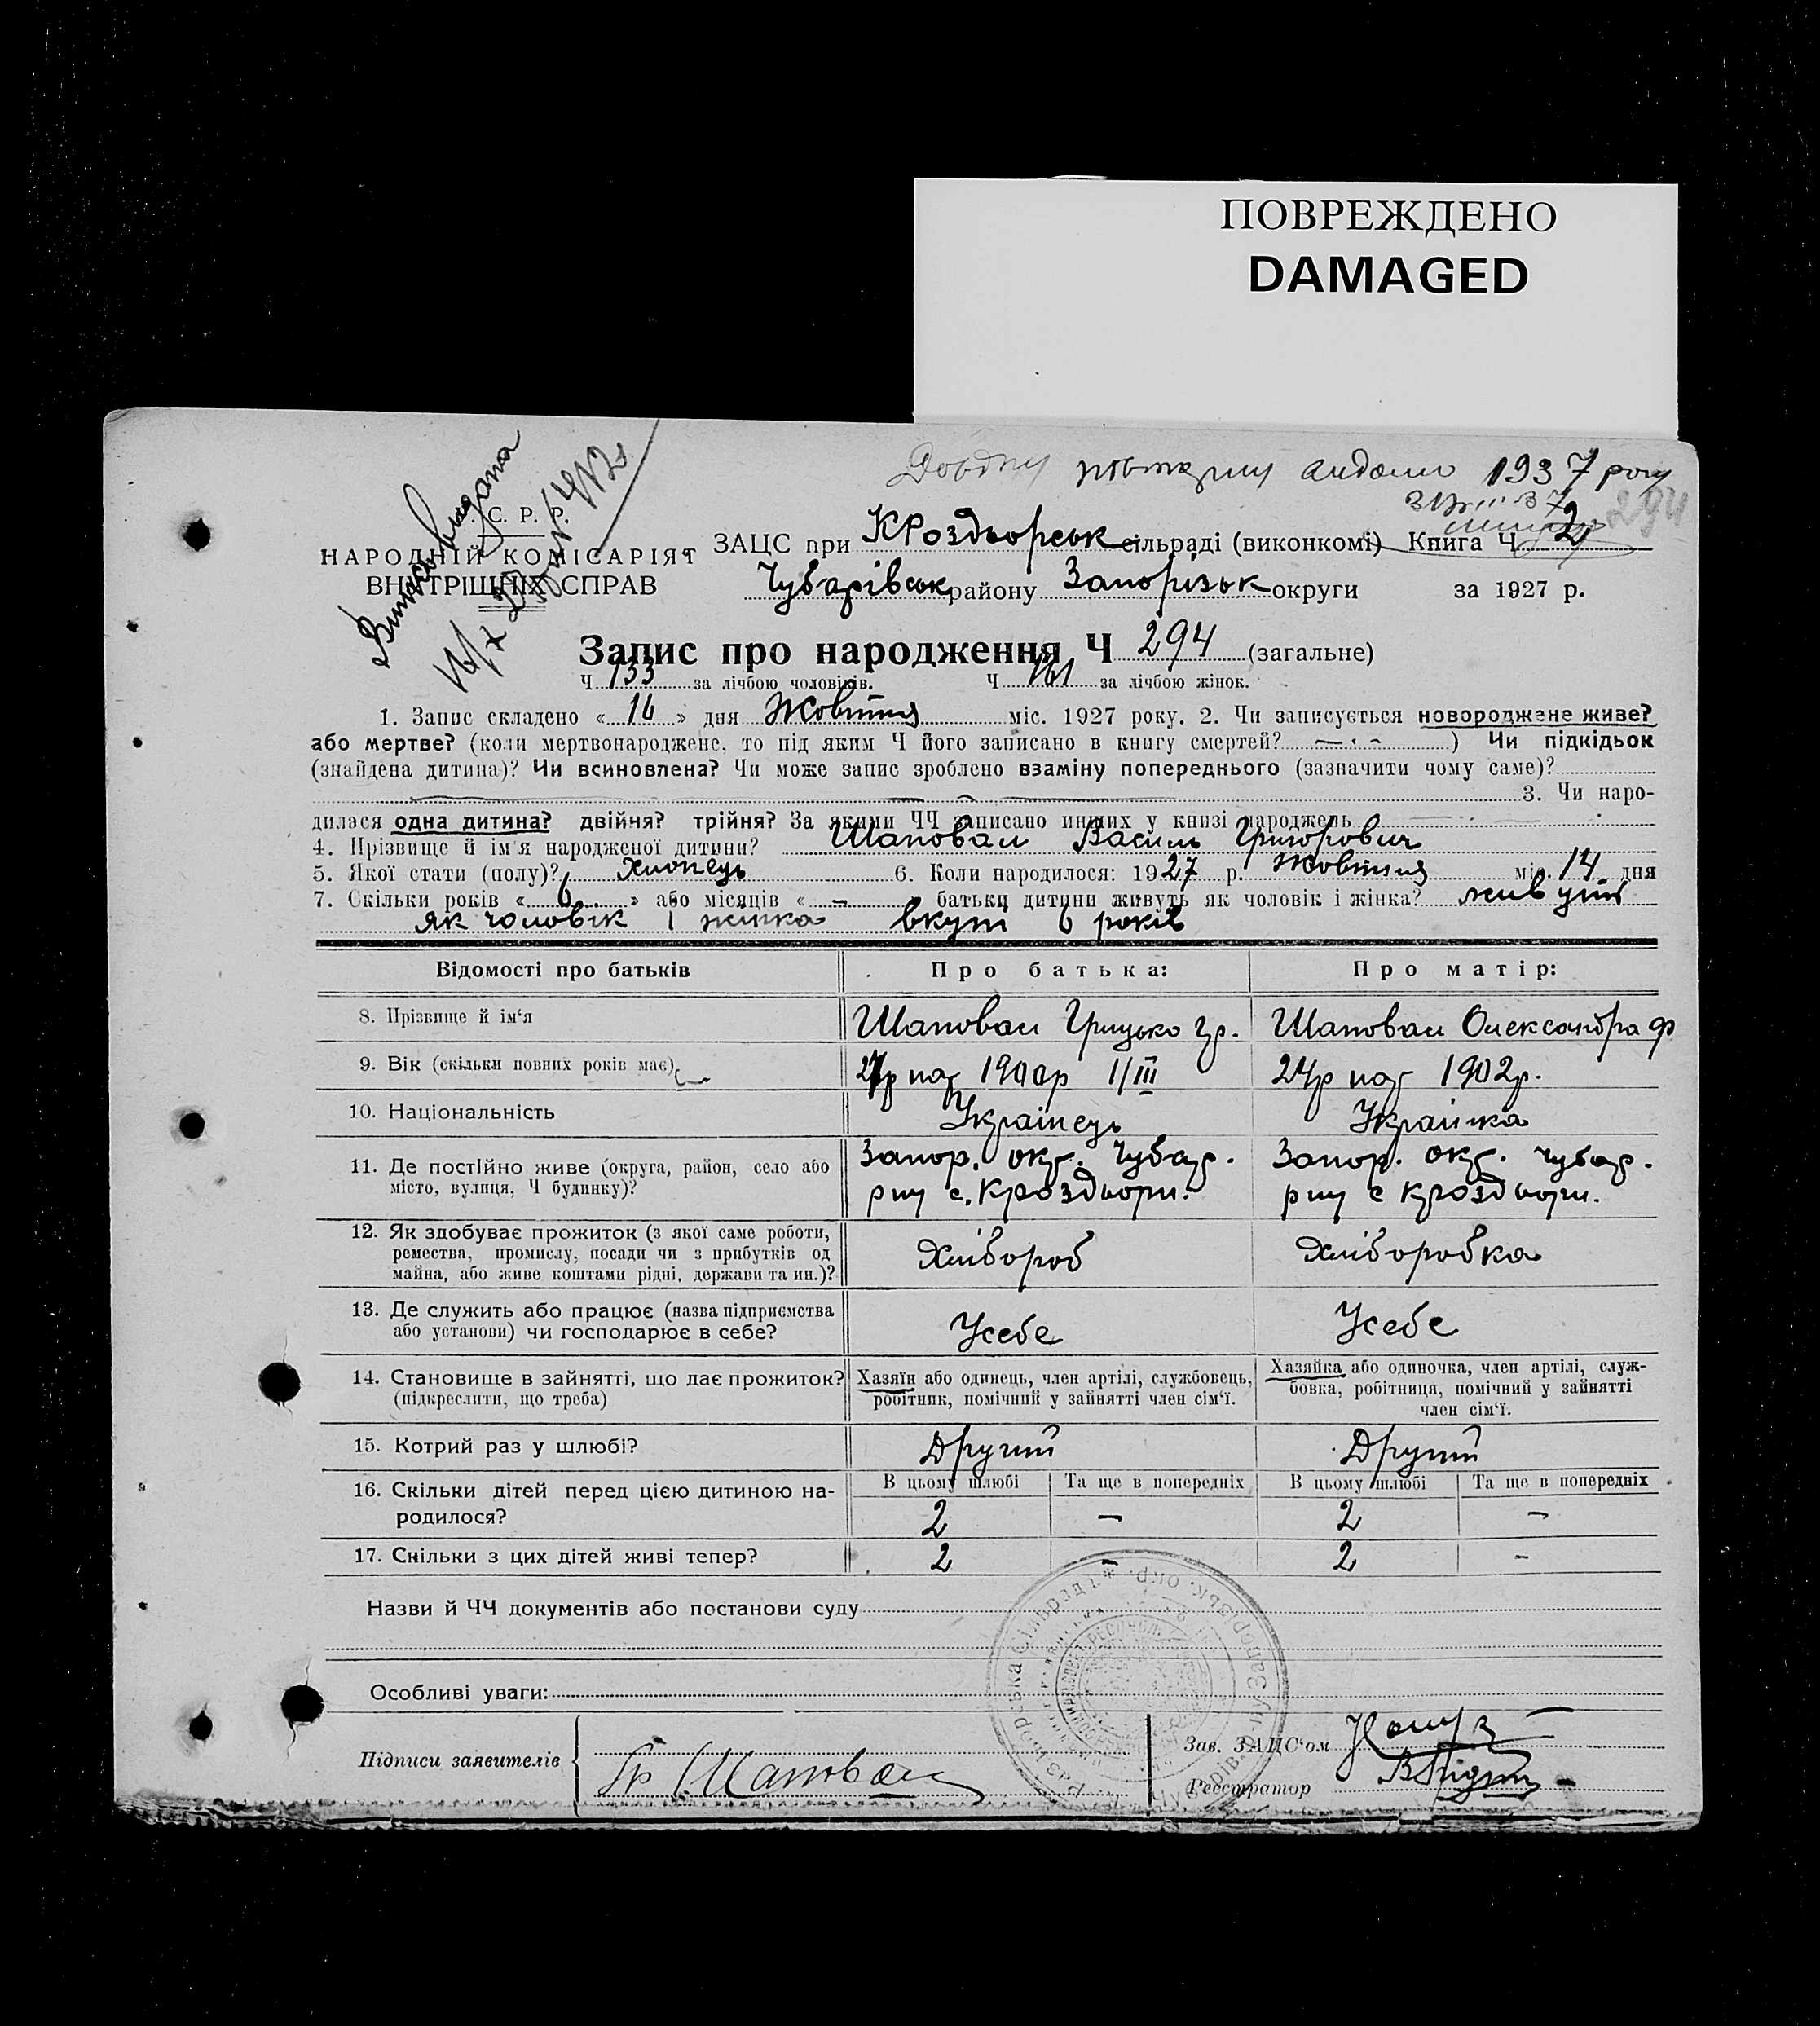 ПОВРЕЖДЕНО
DAMAGED
1937 року
294
С. Р. Р.
НАРОДНІЙ КОМІСАРІЯТ
ВНУТРІШНІХ СПРАВ
Випись видана
ЗАЦС при КРоздьорськ сільраді (виконкомі) Книга Ч 2
Чубарівськ району Запорізьк округи за 1927 р.
Запис про народження Ч 294 (загальне)
Ч 133 за лічбою чоловіків. Ч 161 за лічбою жінок.
1. Запис складено « 16 » дня Жовтня міс. 1927 року. 2. Чи записується новороджене живе?
або мертве? (коли мертвонароджене, то під яким Ч його записано в книгу смертей? — ) Чи підкідьок
(знайдена дитина)? Чи всиновлена? Чи може запис зроблено взаміну попереднього (зазначити чому саме)?
3. Чи наро-
дилася одна дитина? двійня? трійня? За якими ЧЧ записано инших у книзі народжень
4. Прізвище й ім'я народженої дитини? Шаповал Василь Григорович
5. Якої стати (полу)? Хлопець 6. Коли народилося: 1927 р. Жовтня міс. 14 дня
7. Скільки років « 6 » або місяців « – » батьки дитини живуть як чоловік і жінка? живуть
як чоловік і жінка вкупі 6 років
Відомості про батьків Про батька: Про матір:
8. Прізвище й ім'я Шаповал Грицько Гр. Шаповал Олександра Ф
9. Вік (скільки повних років має) 27р нар 1900р 1/III 24р нар 1902р.
10. Національність Українець Українка
11. Де постійно живе (округа, район, село або Запор. окр. Чубар. Запор. окр. Чубар.
місто, вулиця, Ч будинку)? рну с. Кроздьори. рну с Кроздьори.
12. Як здобуває прожиток (з якої саме роботи,
ремества, промислу, посади чи з прибутків од Хлібороб Хліборобка
майна, або живе коштами рідні, держави та ин.)?
13. Де служить або працює (назва підприємства
або установи) чи господарює в себе? Усебе Усебе
14. Становище в зайнятті, що дає прожиток? Хазяїн або одинець, член артілі, службовець, Хазяйка або одиночка, член артілі, служ-
(підкреслити, що треба) робітник, помічний у зайнятті член сім'ї. бовка, робітниця, помічний у зайнятті
член сім'ї.
15. Котрий раз у шлюбі? Другий Другий
16. Скільки дітей перед цією дитиною на- В цьому шлюбі Та ще в попередніх В цьому шлюбі Та ще в попередніх
родилося? 2 – 2 –
17. Скільки з цих дітей живі тепер? 2 – 2 –
Назви й ЧЧ документів або постанови суду
Особливі уваги:
Підписи заявителів Гр Шаповал
Зав. ЗАЦС'ом
Реєстратор